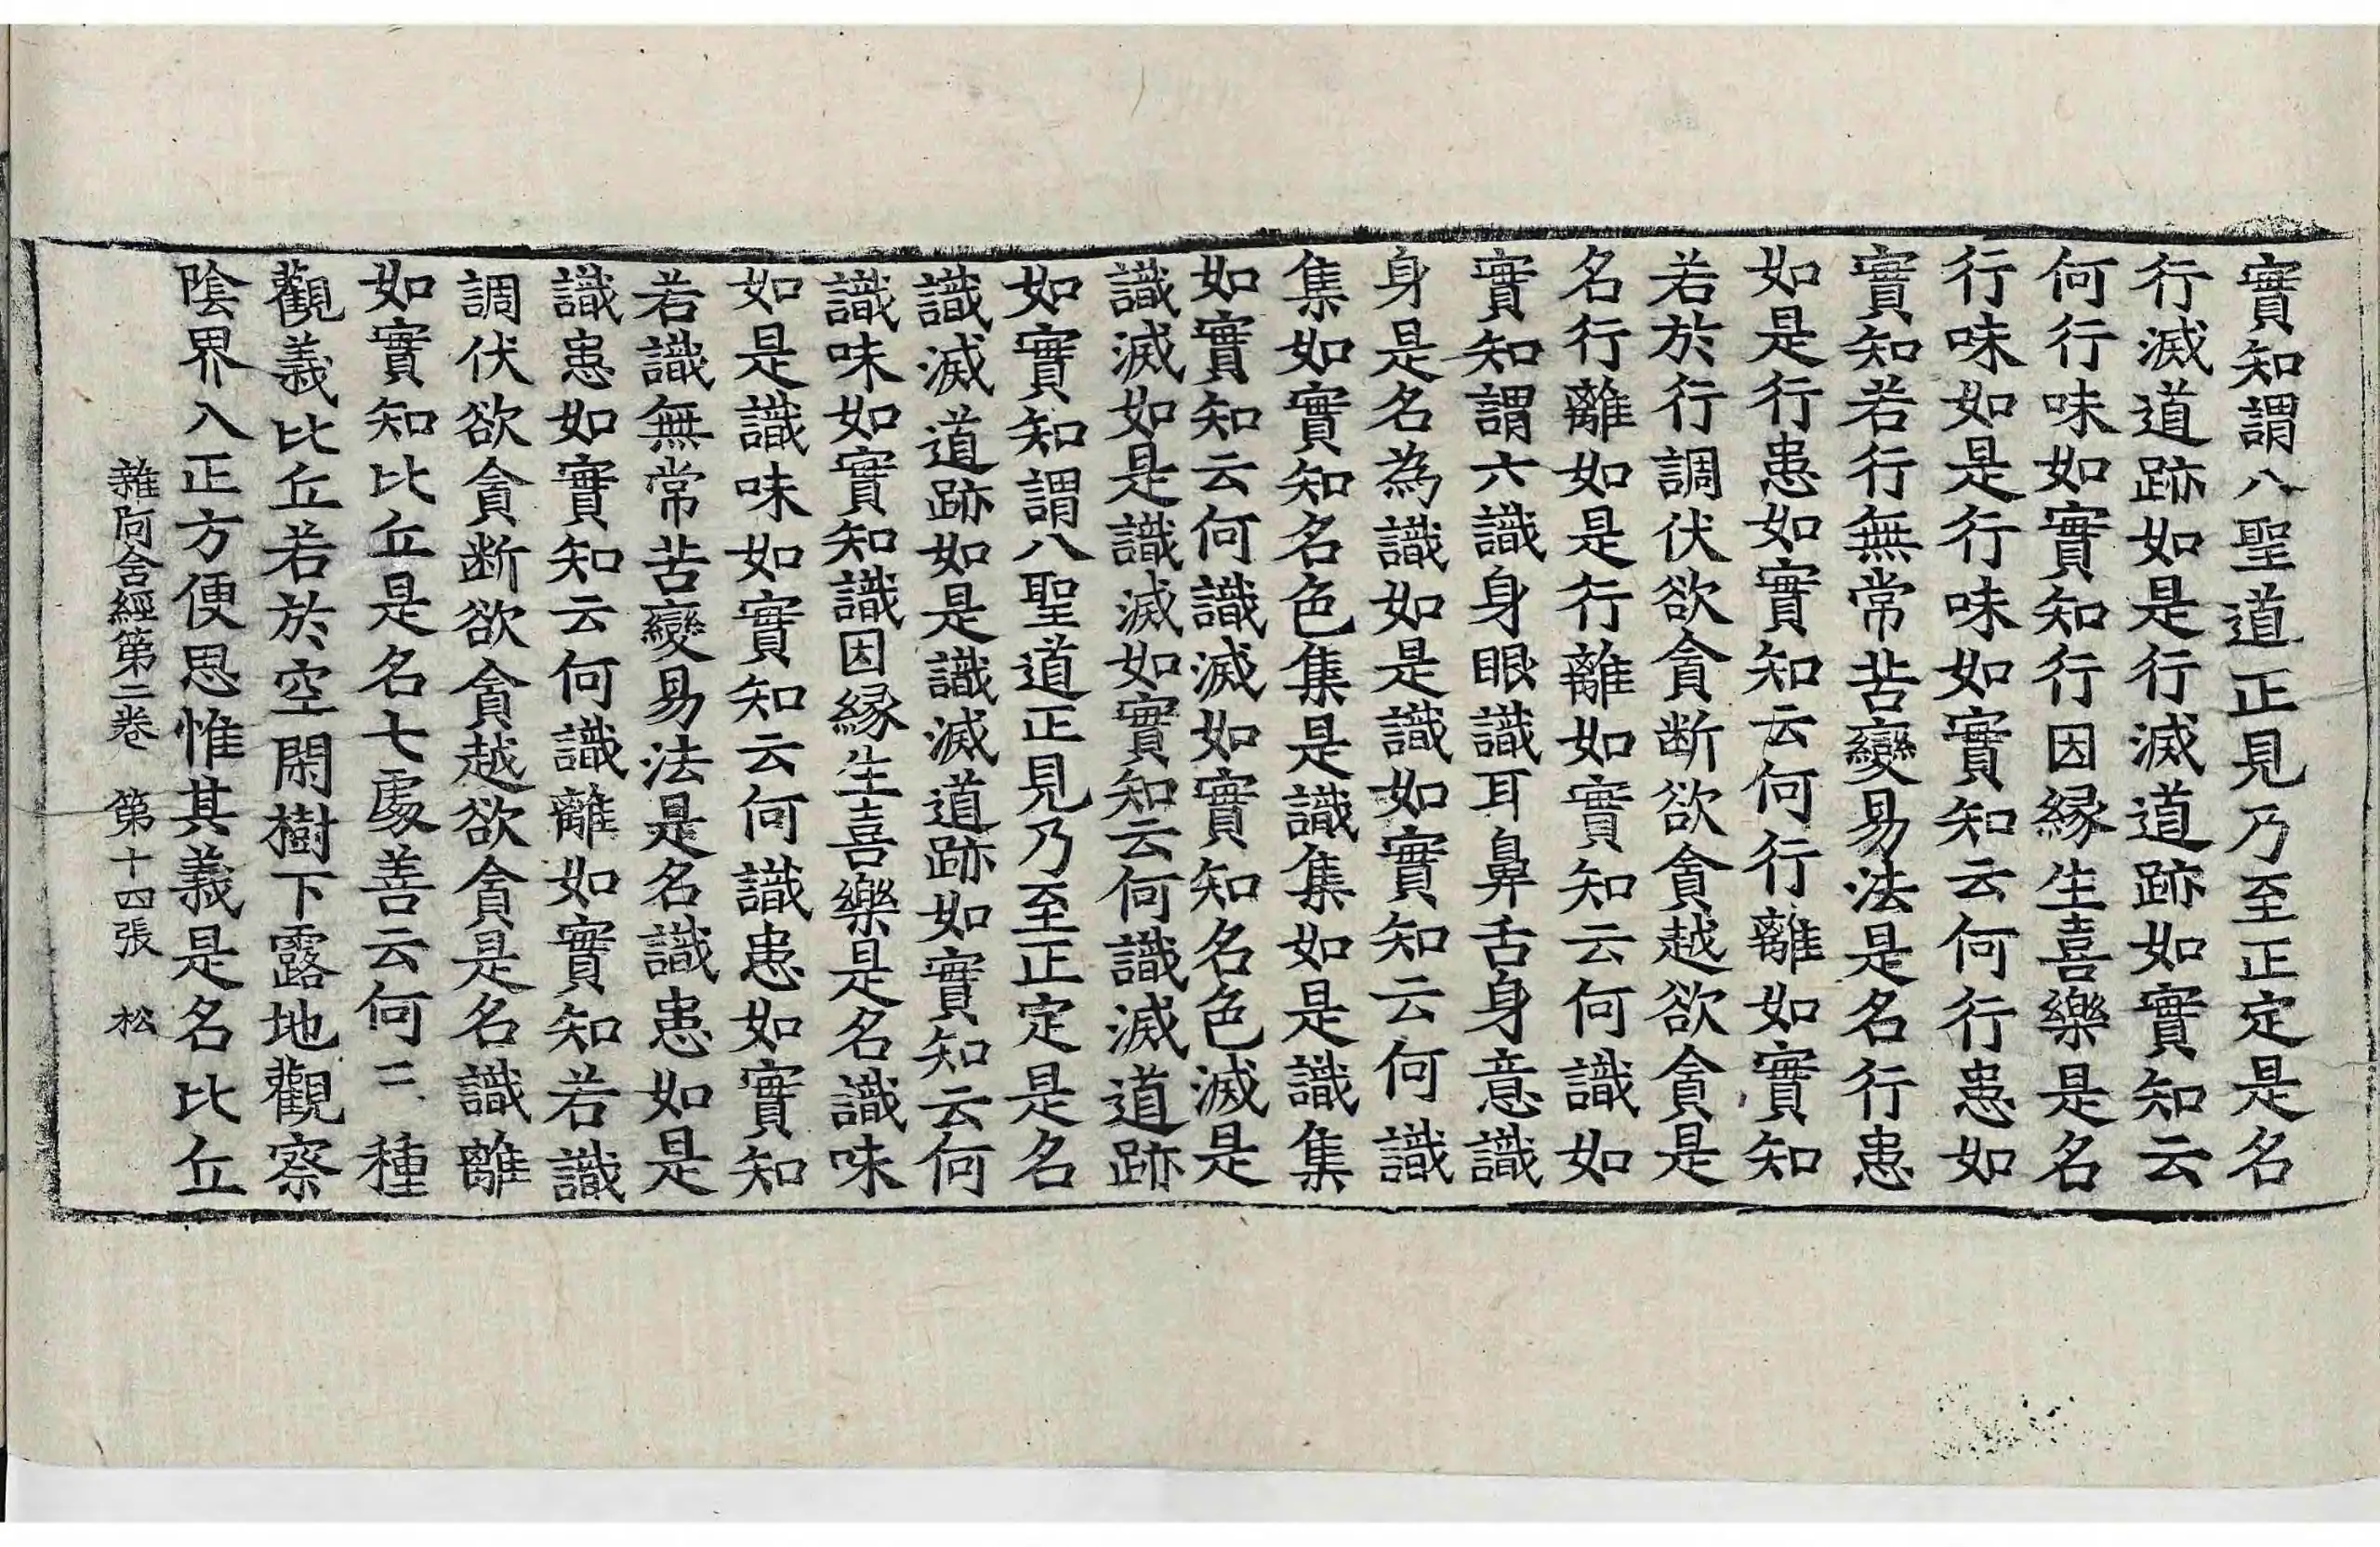 實知謂八聖道正見乃至正定是名
行滅道跡如是行滅道跡如實知云
何行味如實知行因緣生喜樂是名
行味如是行味如實知云何行患如
實知若行無常苦變易法是名行患
如是行患如實知云何行離如實知
若於行調伏欲貪断欲貪越欲貪是
名行離如是行離如實知云何識如
實知謂六識身眼識耳鼻舌身意識
身是名為識如是識如實知云何識
集如實知名色集是識集如是識集
如實知云何識滅如實知名色滅是
識滅如是識滅如實知云何識滅道跡
如實知謂八聖道正見乃至正定是名
識滅道跡如是識滅道跡如實知云何
識味如實知識因緣生喜樂是名識味
如是識味如實知云何識患如實知
若識無常苦變易法是名識患如是
識患如實知云何識離如實知若識
調伏欲貪断欲貪越欲貪是名識離
如實知比丘是名七處善云何二種
觀義比丘若於空閑樹下露地觀察
陰界入正方便思惟其義是名比丘
雜阿含經第二卷 第十四張 松